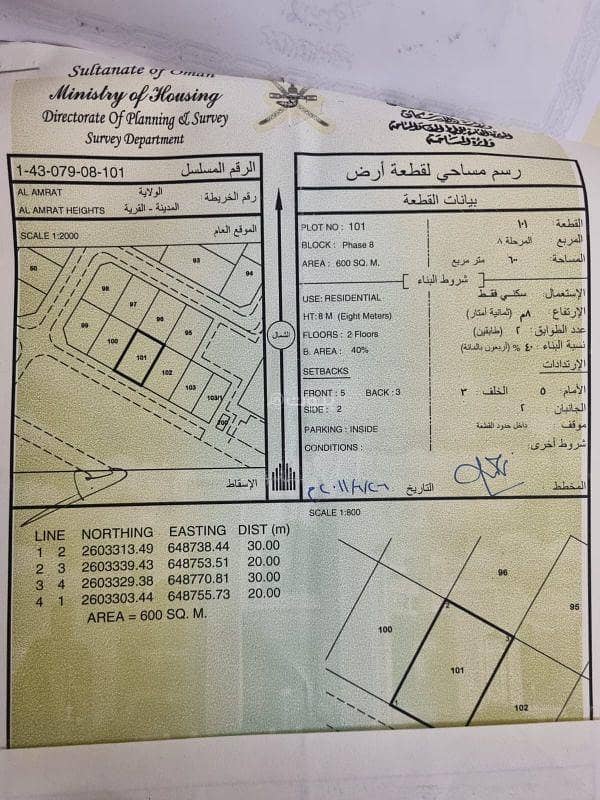 Sultanate of Oman
Ministry of Housing
Directorate Of Planning & Survey
Survey Department
1-43-079-08-101
الرقم المسلسل
AL AMRAT
الولاية
رقم الخريطة :
AL AMRAT HEIGHTS
المدينة - القرية
SCALE 1:2000
الموقع العام
50
93
94
98
97
96
95
99
100
101
102
103
103/1
700
الإسقاط
الشمال
رسم مساحي لقطعة أرض
بيانات القطعة
PLOT NO : 101
١٠١
القطعة
BLOCK : Phase 8
المرحلة ٨
المربع
AREA : 600 SQ. M.
٦٠٠ متر مربع
المساحة:
شروط البناء
USE: RESIDENTIAL
الإستعمال: سكني فقط
HT: 8 M (Eight Meters)
الإرتفاع: ٨م (ثمانية أمتار)
FLOORS : 2 Floors
عدد الطوابق: ٢ (طابقين)
B. AREA : 40%
نسبة البناء: ٤٠ % (أربعون بالمائة)
SETBACKS
الإرتدادات
FRONT : 5 BACK : 3
الأمام: ٥ الخلف: ٣
SIDE : 2
الجانبان: ٢
PARKING : INSIDE
موقف: داخل حدود القطعة
CONDITIONS :
شروط أخرى:
التاريخ
المخطط
SCALE 1:800
LINE NORTHING EASTING DIST (m)
1 2 2603313.49 648738.44 30.00
2 3 2603339.43 648753.51 20.00
3 4 2603329.38 648770.81 30.00
4 1 2603303.44 648755.73 20.00
AREA = 600 SQ. M.
96
95
100
2
3
101
1
102